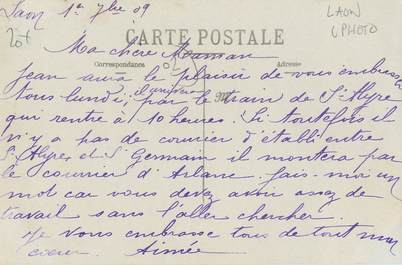 Laon 1er 7bre 09
LAON
(PHOTO)
20f
Ma chère Maman
CARTE POSTALE
Correspondance
Adresse
Jean aura le plaisir de vous embrasser
tous lundi, par le train de St Hyre
qui rentre à 10 heures. Si toutefois il
n'y a pas de courrier d'établi entre
St Hyres et St Germain il montera par
le courrier d'Arlanc. fais-moi un
mot car vous devez avoir assez de
travail sans l'aller chercher.
Je vous embrasse tous de tout mon
coeur. Aimée